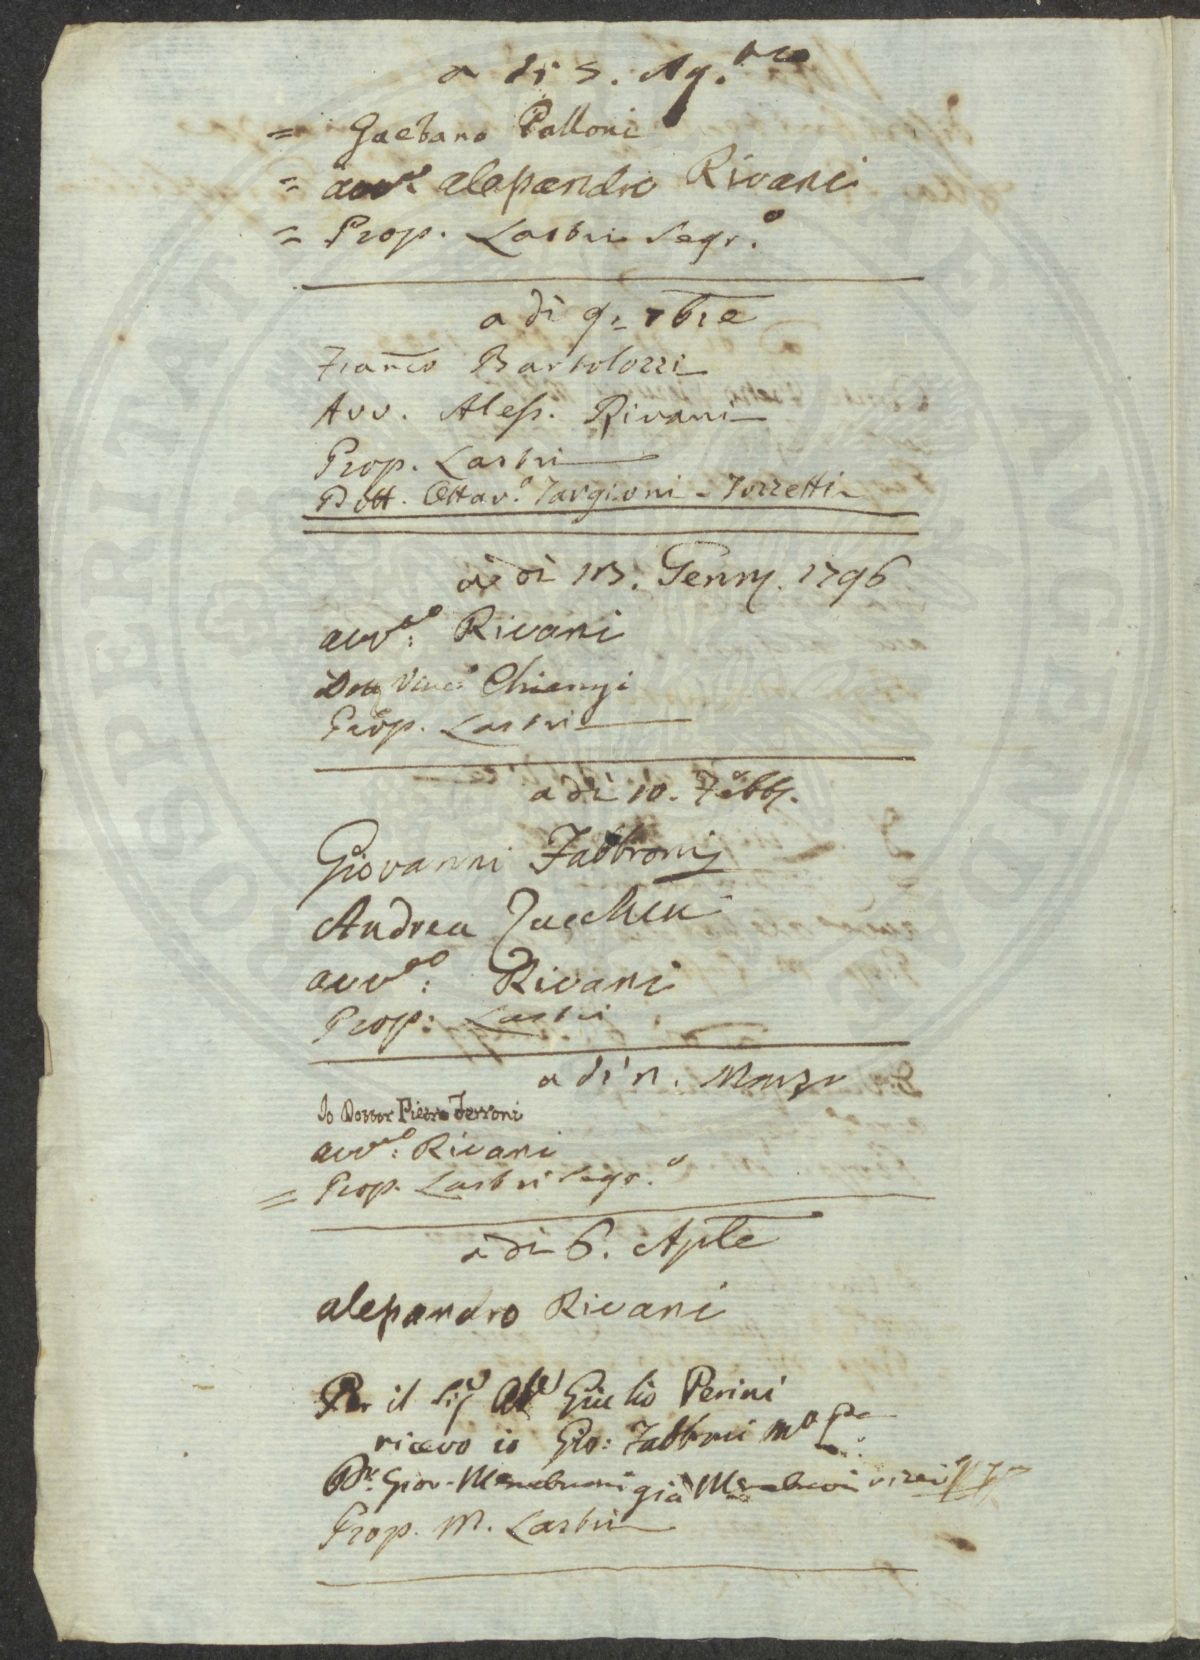 a dì 5. Ag.
= Gaetano Palloni
= avv.º alessandro Rivani
= Prop. Lastri Segr.º
a dì 9. 7bre
Franco Bartolozzi
Avv. Aless. Rivani
Prop. Lastri
Dott. Ottav.º Targioni-Tozzetti
a dì 13. Genn. 1796
avv.º: Rivani
Dott Vinc. Chiarugi
Prop. Lastri
a dì 10. Febb.
Giovanni Fabbroni
Andrea Zucchini
avv.º: Rivani
Prop: Lastri
a dì Marzo
Io Dottor Pietro Ferroni
avv.º: Rivani
= Prop. Lastri Segr.º
a dì 6. Aple
alessandro Rivani
Per il Sig Ab Giulio Perini
ricevo io Gio: Fabbroni
Giov. già
Prop. M. Lastri
SOSPERITATI PUBLICAE